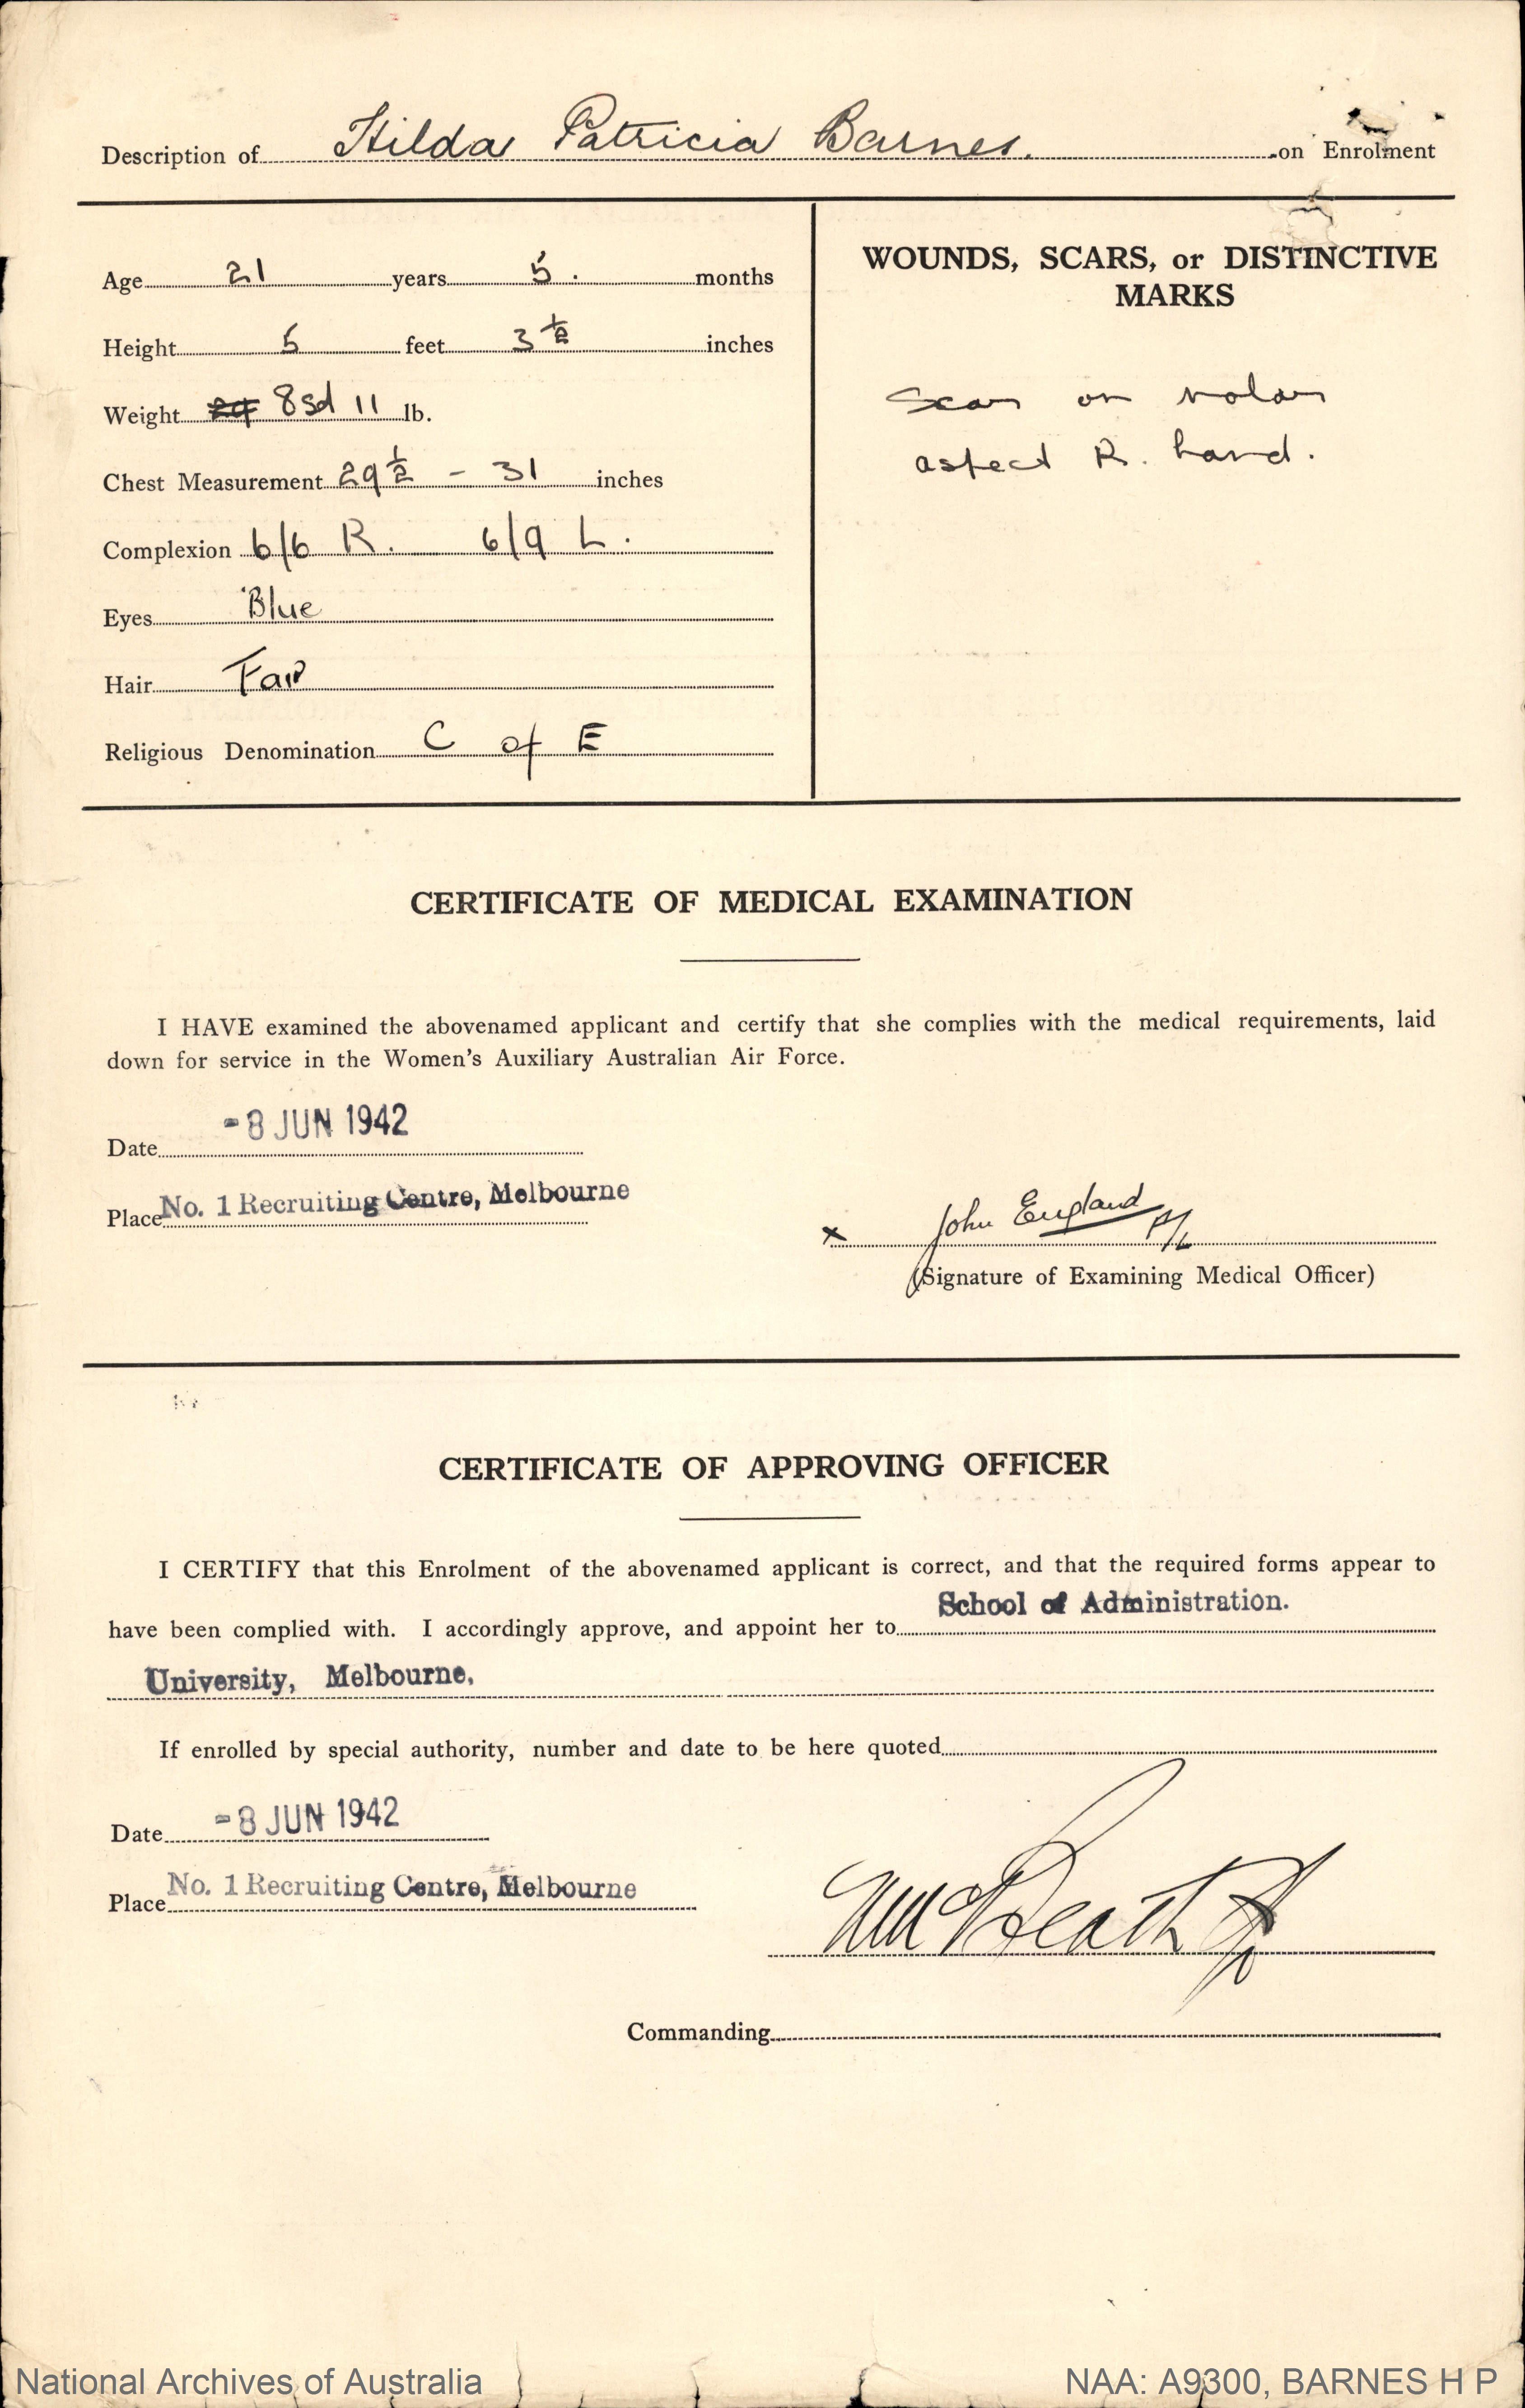 Description of Hilda Patricia Barnes. on Enrolment
Age 21 years 5. months
Height 5 feet 3 ½ inches
Weight 8 st 11 lb.
Chest Measurement 29 ½ - 31 inches
Complexion 6/6 R. 6/9 L.
Eyes Blue
Hair Fair
Religious Denomination C of E
WOUNDS, SCARS, or DISTINCTIVE
MARKS
Scar on volar
aspect R. hand.
CERTIFICATE OF MEDICAL EXAMINATION
I HAVE examined the abovenamed applicant and certify that she complies with the medical requirements, laid
down for service in the Women's Auxiliary Australian Air Force.
Date -8 JUN 1942
Place No. 1 Recruiting Centre, Melbourne
x John England F/L
(Signature of Examining Medical Officer)
CERTIFICATE OF APPROVING OFFICER
I CERTIFY that this Enrolment of the abovenamed applicant is correct, and that the required forms appear to
have been complied with. I accordingly approve, and appoint her to School of Administration.
University, Melbourne.
If enrolled by special authority, number and date to be here quoted
Date -8 JUN 1942
Place No. 1 Recruiting Centre, Melbourne
Commanding
National Archives of Australia
NAA: A9300, BARNES H P